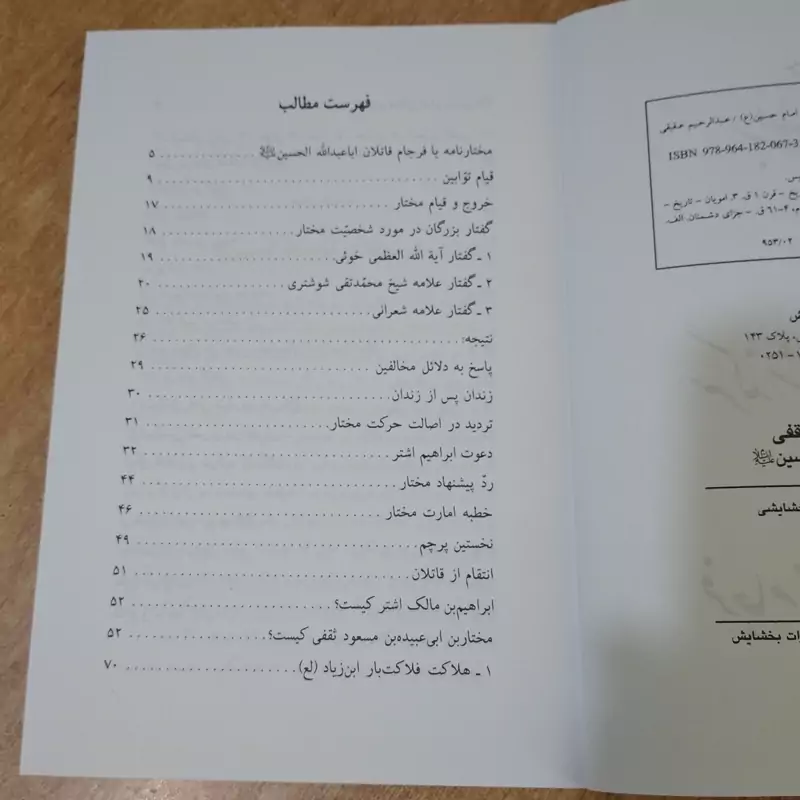 فهرست مطالب
مختارنامه یا فرجام قاتلان اباعبدالله الحسین علیه‌السلام ................ ۵
قیام توّابین ................................ ۹
خروج و قیام مختار ................................ ۱۷
گفتار بزرگان در مورد شخصیّت مختار ................ ۱۸
۱ ـ گفتار آیة الله العظمی خوئی ................ ۱۹
۲ ـ گفتار علامه شیخ محمّدتقی شوشتری ................ ۲۰
۳ ـ گفتار علامه شعرانی ................ ۲۵
نتیجه: ................................ ۲۶
پاسخ به دلائل مخالفین ................ ۲۹
زندان پس از زندان ................ ۳۰
تردید در اصالت حرکت مختار ................ ۳۱
دعوت ابراهیم اشتر ................ ۳۲
ردّ پیشنهاد مختار ................ ۴۴
خطبه امارت مختار ................ ۴۶
نخستین پرچم ................ ۴۹
انتقام از قاتلان ................ ۵۱
ابراهیم‌بن مالک اشتر کیست؟ ................ ۵۲
مختاربن ابی‌عبیده‌بن مسعود ثقفی کیست؟ ................ ۵۲
۱ ـ هلاکت فلاکت‌بار ابن‌زیاد (لع) ................ ۷۰
امام حسین(ع) / عبدالرحیم عقیقی
ISBN 978-964-182-067-3
یس.
ریخ - قرن ۱ ق. ۳. امویان - تاریخ -
م، ۴-۶۱ ق. - جزای دشمنان. الف.
۹۵۳/۰۲
ش
، پلاک ۱۴۳
۱ - ۰۲۵۱
قفی
سین علیه‌السلام
خشایشی
رات بخشایش